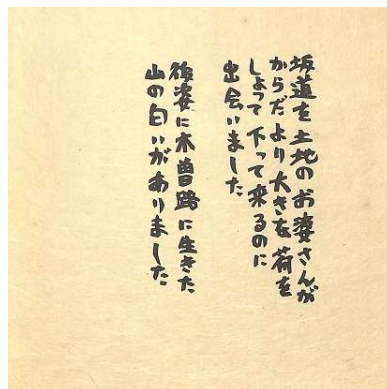 坂道を土地のお婆さんが
からだより大きな荷を
しょって下って来るのに
出会いました
後姿に木曽路に生きた
山の匂いがありました